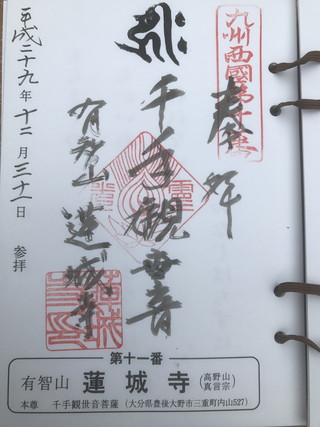 九州西國第十一番
奉拝
千手観世音
有智山 蓮城寺
平成二十九年十二月三十一日 参拝
第十一番
有智山 蓮城寺 (高野山真言宗)
本尊 千手観世音菩薩 (大分県豊後大野市三重町内山527)